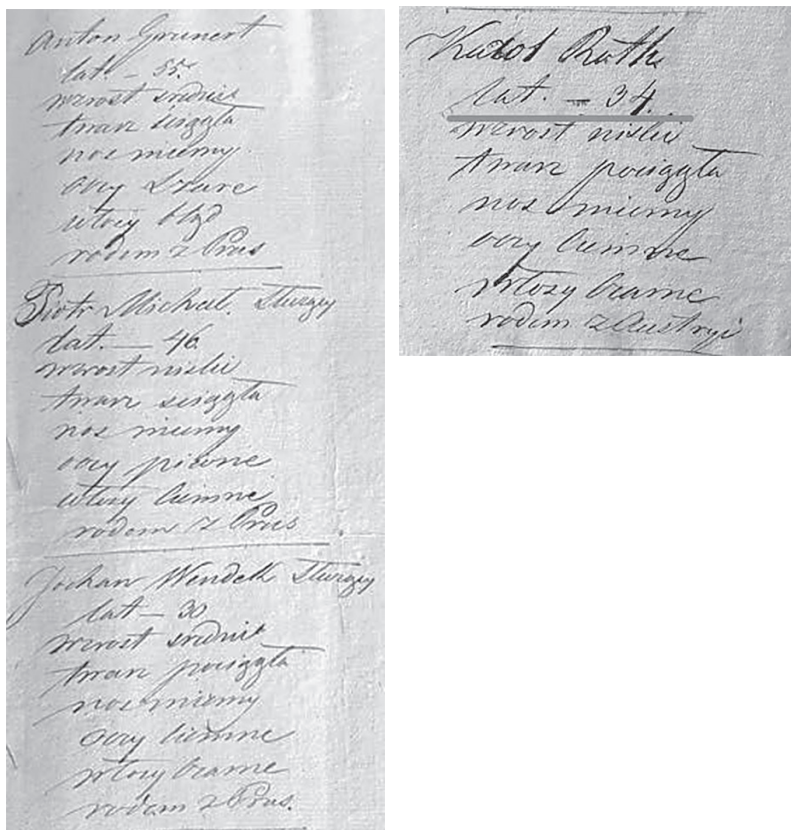 Anton Grunert
lat – 55.
wzrost srednie
twarz sciągła
nos mierny
oczy szare
włosy bląd
rodem z Prus
Piotr Michal. Sturzey
lat. — 46
wzrost niski
twarz sciągła
nos mierny
oczy piwne
włosy ciemne
rodom z Prus
Johan Wendelk Sturzey
lat — 30
wzrost srednie
twarz pociągła
nos mierny
oczy ciemne
włosy czarne
rodem z Prus.
Rath
lat. – 34.
wzrost niski
twarz pociągła
nos mierny
oczy ciemne
włosy czarne
rodem z Austryi